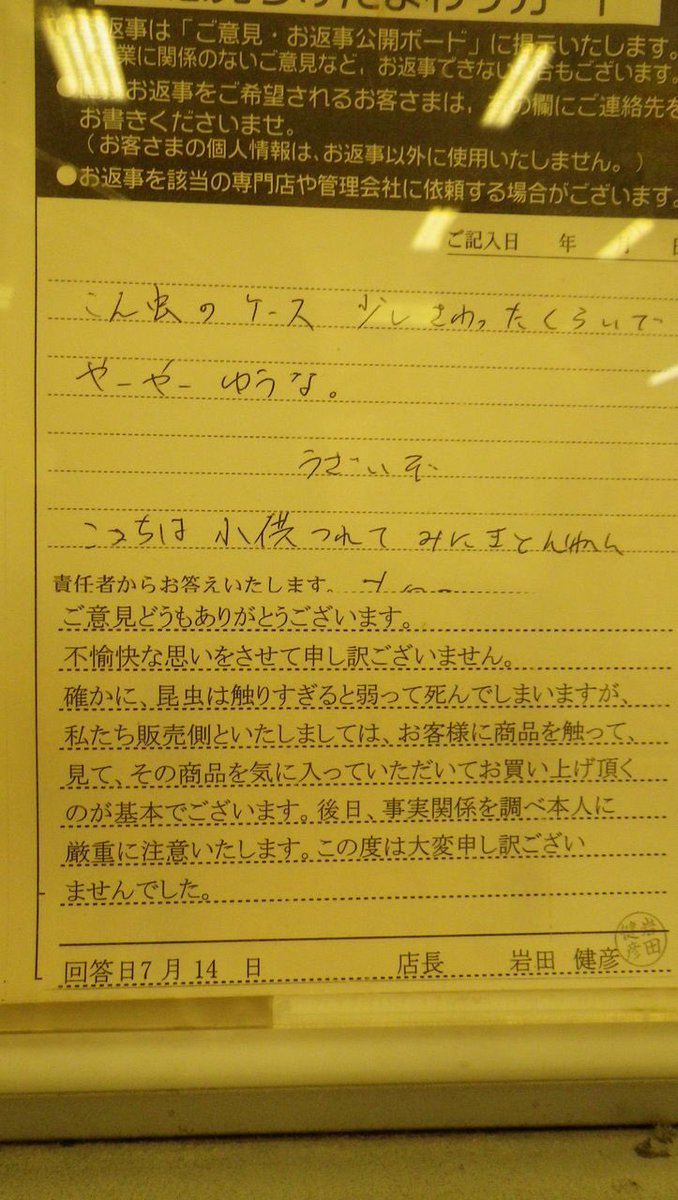 お返事は「ご意見・お返事公開ボード」に掲示いたします。
業に関係のないご意見など、お返事できない場合もございます。
お返事をご希望されるお客さまは、の欄にご連絡先を
お書きくださいませ。
(お客さまの個人情報は、お返事以外に使用いたしません。)
●お返事を該当の専門店や管理会社に依頼する場合がございます。
ご記入日 年 月 日
こん虫のケース 少しさわったくらいで
やーやーゆうな。
うざいぞ
こっちは小供つれてみにきとんねん
責任者からお答えいたします。
ご意見どうもありがとうございます。
不愉快な思いをさせて申し訳ございません。
確かに、昆虫は触りすぎると弱って死んでしまいますが、
私たち販売側といたしましては、お客様に商品を触って、
見て、その商品を気に入っていただいてお買い上げ頂く
のが基本でございます。後日、事実関係を調べ本人に
厳重に注意いたします。この度は大変申し訳ござい
ませんでした。
回答日7月14 日 店長 岩田 健彦 岩田健彦